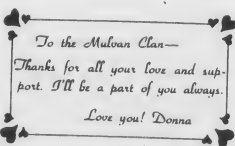 To the Mulvan Clan—
Thanks for all your love and sup-
port. I'll be a part of you always.
Love you! Donna